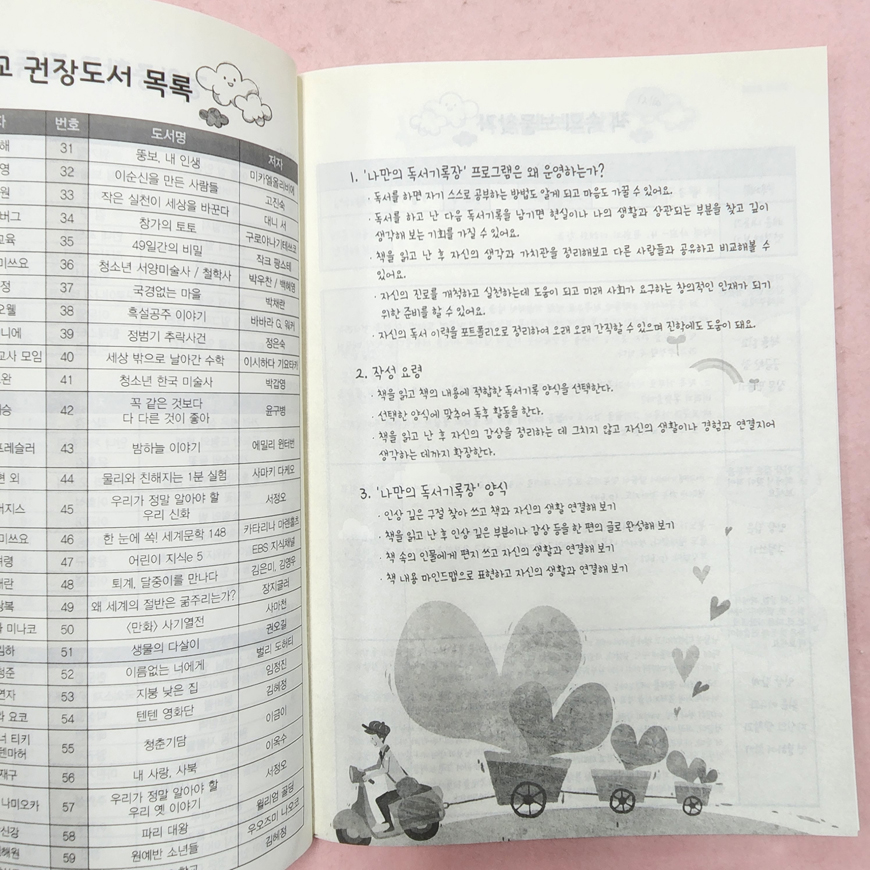 권장도서 목록
번호 도서명 저자
31 뚱보, 내 인생 미카엘올리비에
32 이순신을 만든 사람들 고진숙
33 작은 실천이 세상을 바꾼다 대니 서
34 창가의 토토 구로야나기테쓰코
35 49일간의 비밀 작크 팡스테
36 청소년 서양미술사 / 철학사 박우찬 / 백혜영
37 국경없는 마을 박채란
38 흑설공주 이야기 바바라 G. 워커
39 정범기 추락사건 정은숙
교사 모임 40 세상 밖으로 날아간 수학 이시하다 기요타카
41 청소년 한국 미술사 박갑영
42 꼭 같은 것보다
다 다른 것이 좋아 윤구병
프레슬러 43 밤하늘 이야기 에밀리 윈터번
44 물리와 친해지는 1분 실험 사마키 다케오
45 우리가 정말 알아야 할
우리 신화 서정오
46 한 눈에 쏙! 세계문학 148 카타리나 마렌홀츠
47 어린이 지식e 5 EBS 지식채널
48 퇴계, 달중이를 만나다 김은미, 김영우
49 왜 세계의 절반은 굶주리는가? 장지글러
미나코 50 〈만화〉 사기열전 사마천
51 생물의 다살이 권오길
52 이름없는 너에게 벌리 도허티
53 지붕 낮은 집 임정진
요코 54 텐텐 영화단 김혜정
55 청춘기담 이금이
56 내 사랑, 사북 이옥수
나미오카 57 우리가 정말 알아야 할
우리 옛 이야기 서정오
58 파리 대왕 윌리엄 골딩
59 원예반 소년들 우오즈미 나오코
김혜정
1. '나만의 독서기록장' 프로그램은 왜 운영하는가?
· 독서를 하면 자기 스스로 공부하는 방법도 알게 되고 마음도 가꿀 수 있어요.
· 독서를 하고 난 다음 독서기록을 남기면 현실이나 나의 생활과 상관되는 부분을 찾고 깊이
생각해 보는 기회를 가질 수 있어요.
· 책을 읽고 난 후 자신의 생각과 가치관을 정리해보고 다른 사람들과 공유하고 비교해볼 수
있어요.
· 자신의 진로를 개척하고 실천하는데 도움이 되고 미래 사회가 요구하는 창의적인 인재가 되기
위한 준비를 할 수 있어요.
· 자신의 독서 이력을 포트폴리오로 정리하여 오래 오래 간직할 수 있으며 진학에도 도움이 돼요.
2. 작성 요령
· 책을 읽고 책의 내용에 적합한 독서기록 양식을 선택한다.
· 선택한 양식에 맞추어 독후 활동을 한다.
· 책을 읽고 난 후 자신의 감상을 정리하는 데 그치지 않고 자신의 생활이나 경험과 연결지어
생각하는 데까지 확장한다.
3. '나만의 독서기록장' 양식
· 인상 깊은 구절 찾아 쓰고 책과 자신의 생활 연결해 보기
· 책을 읽고 난 후 인상 깊은 부분이나 감상 등을 한 편의 글로 완성해 보기
· 책 속의 인물에게 편지 쓰고 자신의 생활과 연결해 보기
· 책 내용 마인드맵으로 표현하고 자신의 생활과 연결해 보기